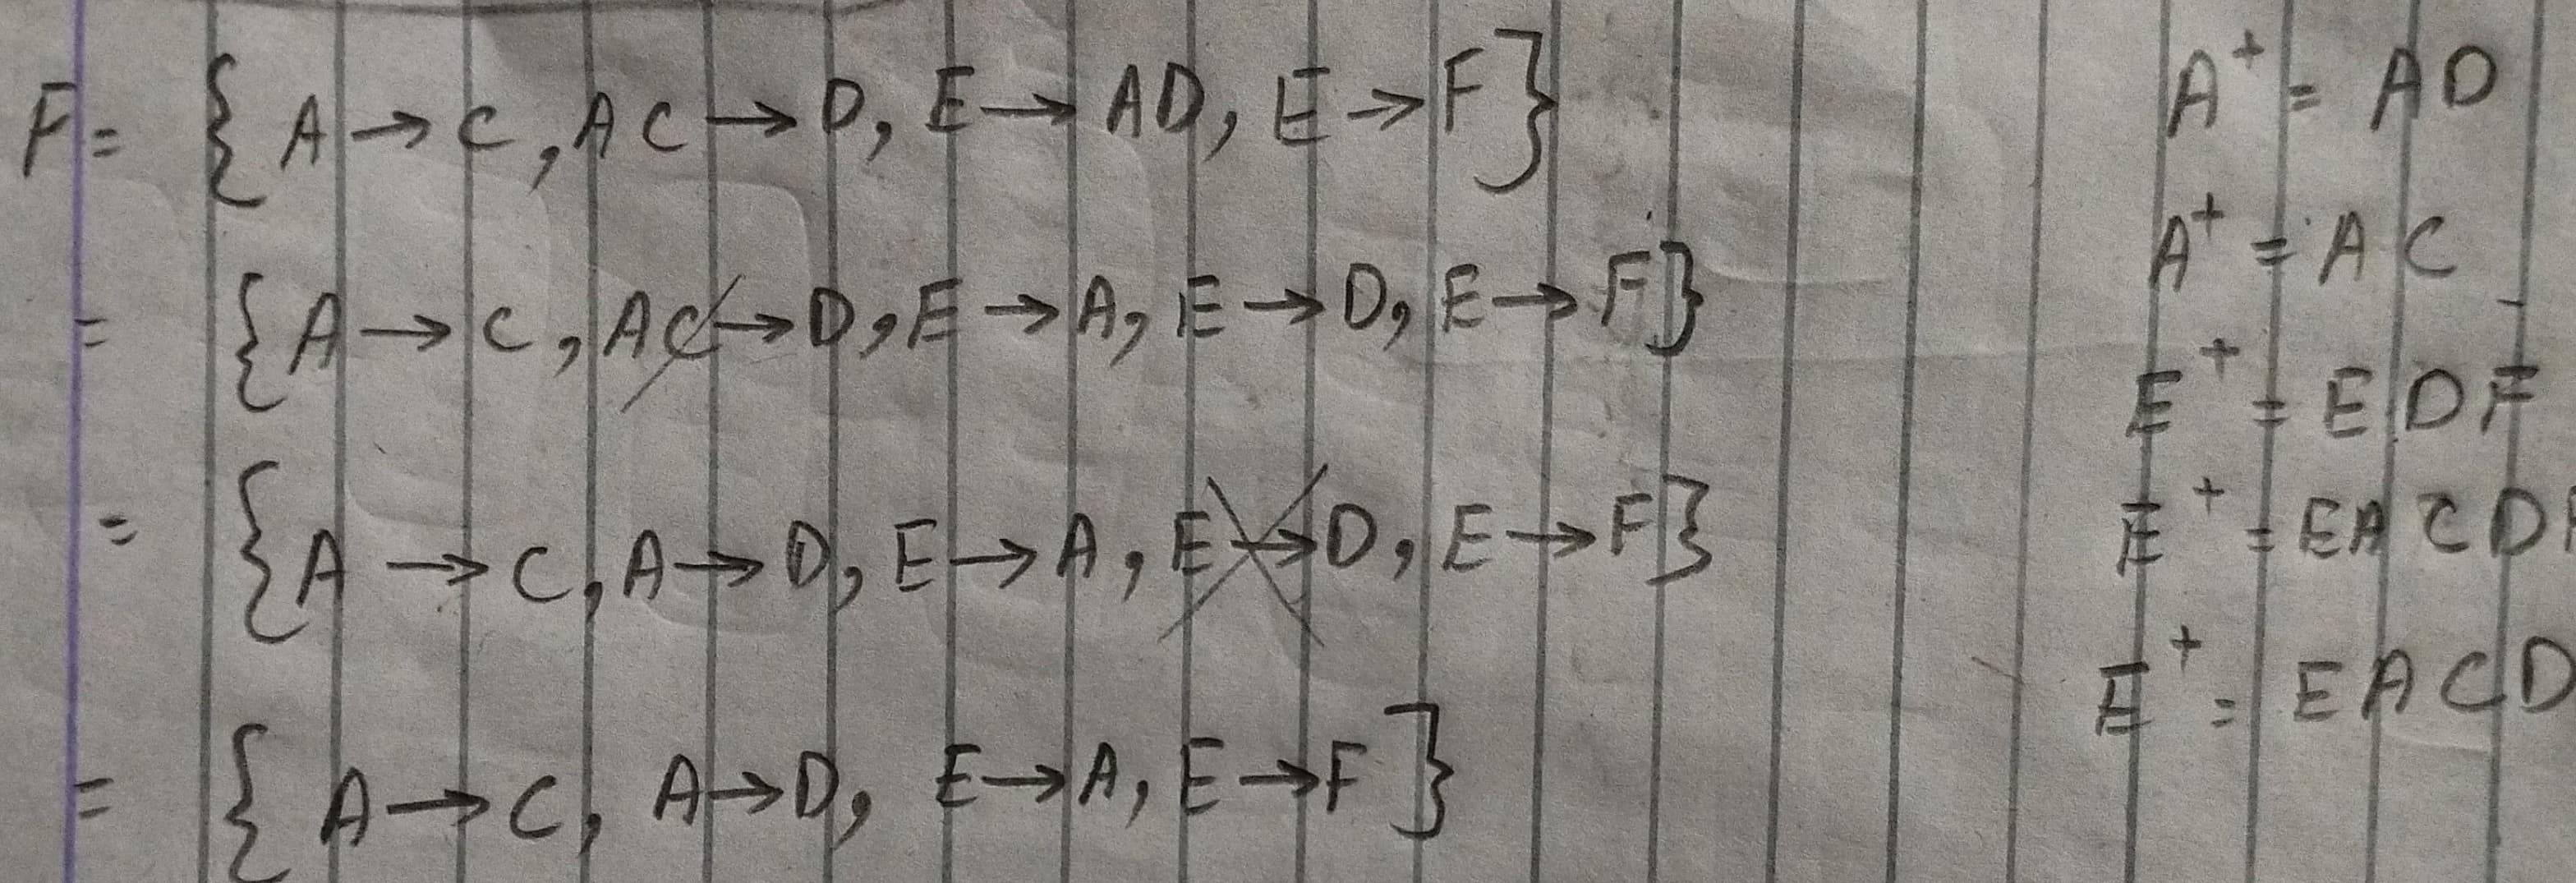 F = { A → C, AC → D, E → AD, E → F }
= { A → C, AC → D, E → A, E → D, E → F }
= { A → C, A → D, E → A, E → D, E → F }
= { A → C, A → D, E → A, E → F }
A⁺ = AD
A⁺ = AC
E⁺ = EDF
E⁺ = EACD
E⁺ = EACD